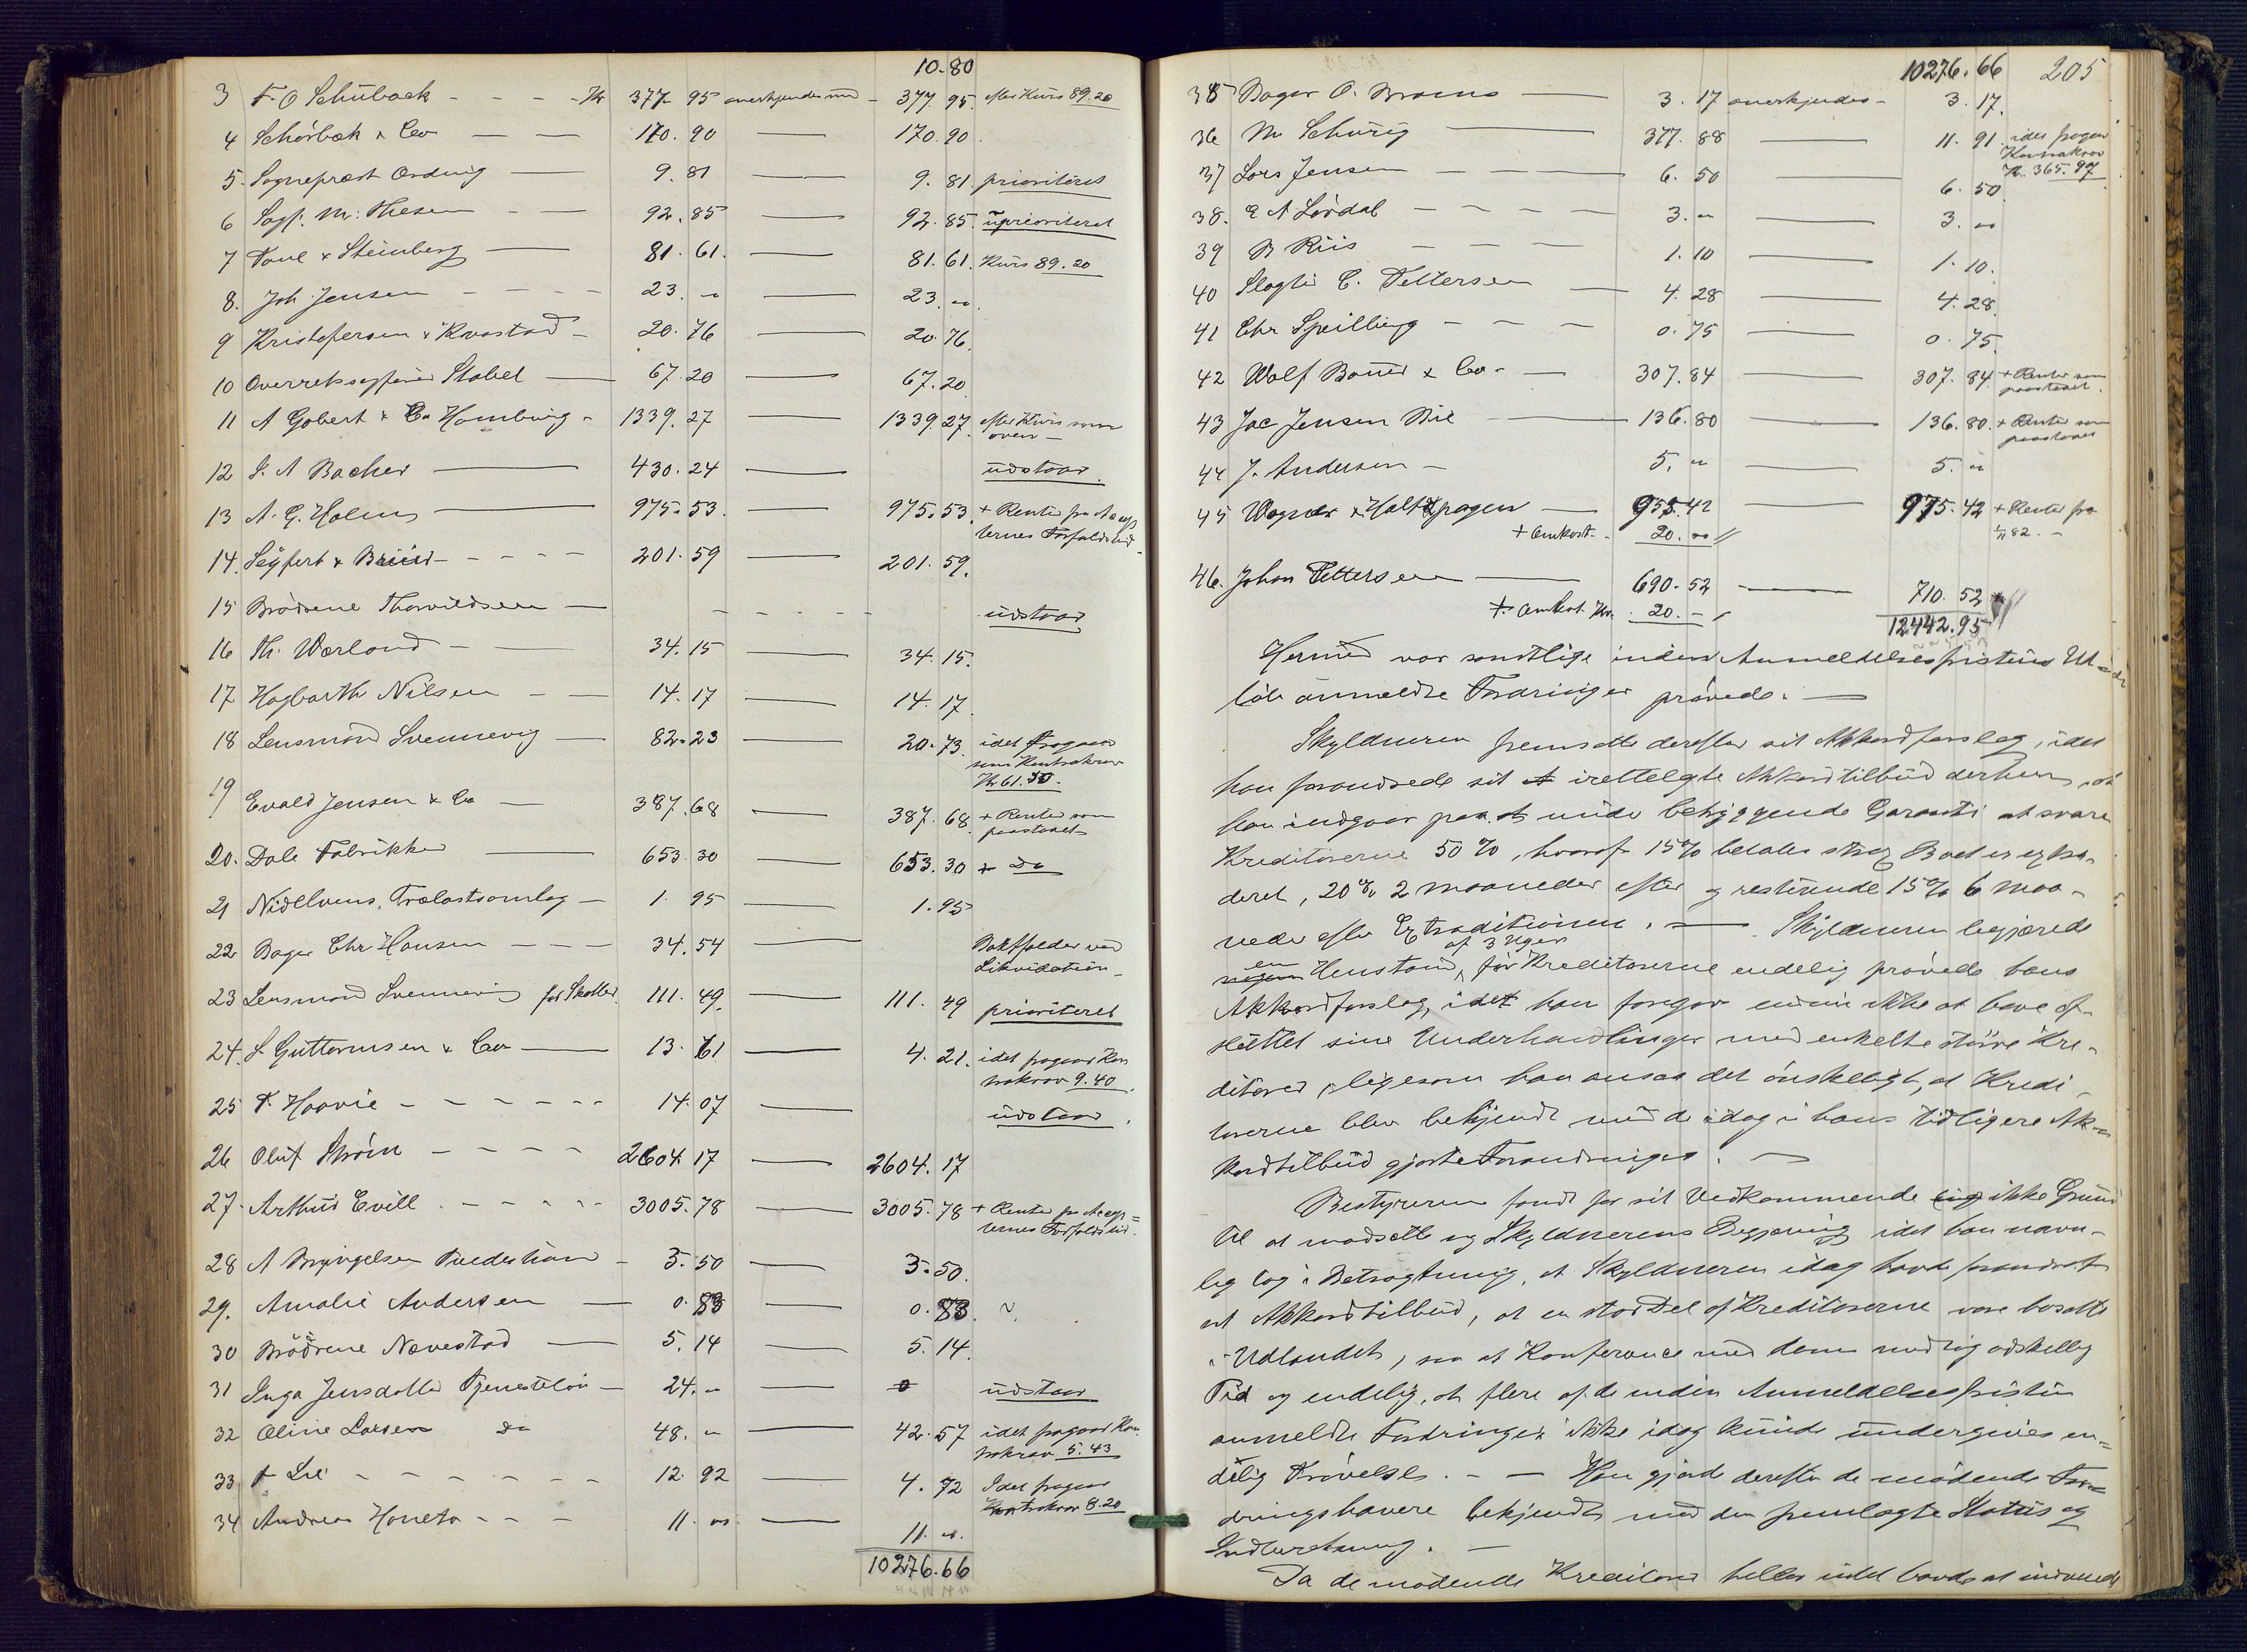 10.80
3 F. O Schüback - - - - Kr 377 95 anerkjendes med - 377. 95. efter Kurs 89.20
4 Schörbæk & Co — — 170. 90 — 170. 90.
5. Sogneprest Ording — 9. 81 — 9. 81. prioriteret
6 Sagf. M. Thesen - — 92. 85 — 92. 85. uprioriteret
7 Paul & Steinberg — 81. 61. — 81. 61. Kurs 89.20
8. Joh Jensen - - - - 23. „ — 23. „
9 Kristofersen & Kvastad - 20. 76 — 20. 76.
10 Overretssagfører Stabel — 67. 20 — 67. 20
11 A Gobert & Co Hamburg - 1339. 27 — 1339. 27. efter Kurs som
oven -
12 S. A Backer — 430. 24 — udstaar.
13 A. G. Holm — 975. 53. — 975. 53. + Renter fra Accep
ternes Forfaldstid -
14. Seyfert & Bruun - - - - 201. 59 — 201. 59.
15 Brødrene Thorvildsen — - - - - udstaar
16 Th. Worland - — 34. 15 — 34. 15.
17 Hagbarth Nilsen - - 14. 17 — 14. 17.
18 Lensmand Svennevig — 82. 23 — 20. 73. idet fragaar
som Kontrakrav
Kr 61. 50.
19 Evald Jensen & Co — 387. 68 — 387. 68. + Renter som
paastaaet
20. Dale Fabrikker — 653. 30 — 653. 30 + Do
21 Nidelvens Trælastsomlag — 1. 95 — 1. 95
22 Bager Chr Hansen - - - 34. 54 — Bortfalder ved
Likvidation -
23 Lensmand Svennevig for Skatter. 111. 49. — 111. 49 prioriteret
24. S. Guttormsen & Co — 13. 61 — 4. 21. idet fragaar Kon
trakrav 9.40.
25 T. Haavie - - - - - - 14. 07 — udstaar.
26 Oluf Strøm - - - - 2604. 17 — 2604. 17
27. Arthur Evill - - - - - 3005. 78 — 3005. 78 + Renter fra Accep=
ternes Forfaldstid.
28 A Bryngelsen Tvedestrand - 3. 50 — 3. 50.
29. Amalie Andersen — 0. 83 — 0. 83.
30 Brødrene Navestad — 5. 14 — 5. 14.
31 Inga Jensdatter Tjenesteløn — 24. „ — 0 udstaar
32 Oline Larsen Do 48. „ — 42. 57 idet fragaar Kon
trakrav 5.43
33 A Lie - - - - - - - 12. 92 — 4. 72 Idet fragaar
Kontrakrav 8.20
34 Andreas Honeto - - - 11. „ — 11. „
10276.66
10276.66 205
35 Bager O. Broms — 3. 17 anerkjendes - 3. 17.
36 M Schurig — 377. 88 — 11. 91. idet fragaar
Kontrakrav
Kr. 365.97
37 Lars Jensen - - - - 6. 50 — 6. 50.
38. E A Lövdal - - - - 3. „ — 3. „
39 B Riis - - - 1. 10 — 1. 10.
40 Slagter C. Pettersen — 4. 28 — 4. 28.
41 Chr Speilberg - - - 0. 75 — 0. 75.
42 Wolf Bauer & Co - — 307. 84 — 307. 84. + Renter som
paastaaet.
43 Jac Jensen Bie — 136. 80 — 136. 80. + Renter som
paastaaet
44 J. Andersen - 5. „ — 5. „
45 Wagner & Holtzhagen — 955. 42 — 975. 42 + Renter fra
1/11 82. -
+ Omkost. - 20. „ //
46. Johan Pettersen — 690. 52 — 710. 52
+ Omkost. Kr. 20. -
12442.95
Hermed var samtlige inden Anmeldelsesfristens Ud-
løb anmeldte Fordringer prøvede. —
Skyldneren fremsatte derefter sit Akkordforslag, idet
han forandrede sit irettelagte Akkordtilbud derhen, at
han indgaar paa at under betryggende Garanti at svare
Kreditorerne 50 %, hvoraf 15 % betales strax Boet er extra-
deret, 20 % 2 maaneder efter og resterende 15 % 6 maa-
neder efter Extraditionen. — Skyldneren begjærede
en Henstand af 3 Uger, før Kreditorerne endelig prøvede hans
Akkordforslag, idet han foregav endnu ikke at have af-
sluttet sine Underhandlinger med enkelte større Kre-
ditorer, ligesom han ansaa det ønskeligt, at Kredi-
torerne blev bekjendt med de idag i hans tidligere Ak-
kordtilbud gjorte Forandringer. —
Bestyreren fandt for sit Vedkommende ikke Grund
til at modsætte sig Skyldnerens Begjæring idet han navn-
lig tog i Betragtning, at Skyldneren idag havde forandret
sit Akkordtilbud, at en stor Del af Kreditorerne vare bosatte
i Udlandet, saa at Konference med dem medtog adskillig
Tid og endelig, at flere af de inden Anmeldelsesfristen
anmeldte Fordringer ikke idag kunde undergives en-
delig Prøvelse. - — Han gjorde derefter de mødende For-
dringshavere bekjendt med den fremlagte Status og
Indberetning. —
Da de mødende Kreditorer heller intet havde at indvende